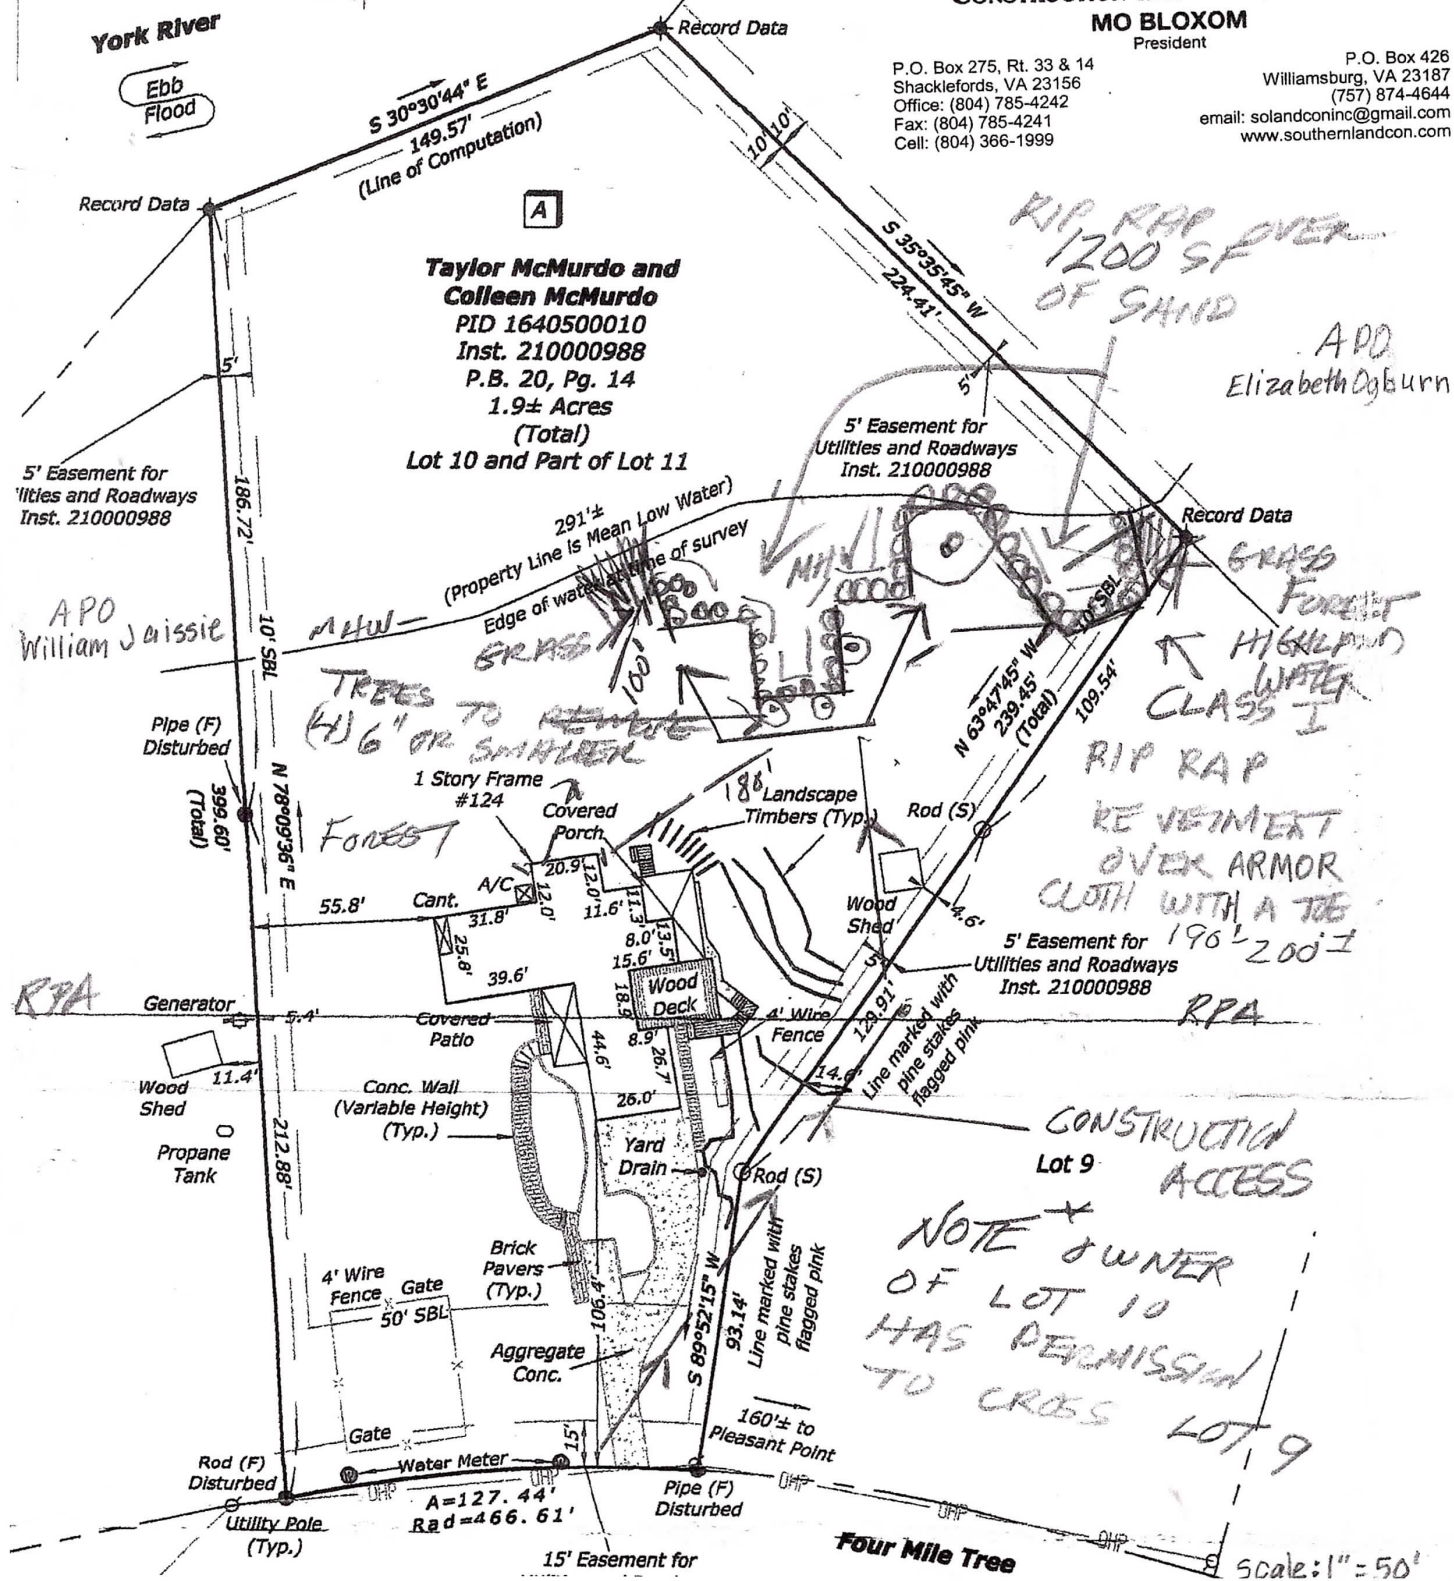 MO BLOXOM
President
P.O. Box 275, Rt. 33 & 14
Shacklefords, VA 23156
Office: (804) 785-4242
Fax: (804) 785-4241
Cell: (804) 366-1999
P.O. Box 426
Williamsburg, VA 23187
(757) 874-4644
email: solandconinc@gmail.com
www.southernlandcon.com
York River
Ebb
Flood
Record Data
S 30°30'44" E
149.57'
(Line of Computation)
Record Data
10' 10'
A
Taylor McMurdo and
Colleen McMurdo
PID 1640500010
Inst. 210000988
P.B. 20, Pg. 14
1.9± Acres
(Total)
Lot 10 and Part of Lot 11
S 35°35'45" W
224.41'
RIP RAP OVER
1200 SF
OF SAND
APO
Elizabeth Ogburn
5'
5'
5' Easement for
Utilities and Roadways
Inst. 210000988
5' Easement for
lities and Roadways
Inst. 210000988
186.72'
291'±
(Property Line is Mean Low Water)
Edge of water at time of survey
Record Data
GRASS
FOREST
HIGHLAND
WATER
MH
10' SBL
APO
William Jaissie
MHW
10' SBL
GRASS
100'
TREES
(4) 6" OR TO REMOVE
SMALLER
N 63°47'45" W
239.45'
(Total)
109.54'
CLASS I
RIP RAP
REVETMENT
OVER ARMOR
CLOTH WITH A TOE
190'± 200'±
Pipe (F)
Disturbed
399.60'
(Total)
N 78°09'36" E
FOREST
1 Story Frame
#124
Covered
Porch
188'
Landscape
Timbers (Typ.)
Rod (S)
A/C
20.9'
12.0'
12.0'
11.6'
11.3'
Cant.
31.8'
55.8'
25.8'
39.6'
8.0'
13.5'
15.6'
18.9'
Wood
Deck
8.9'
Wood
Shed
4.6'
5'
5' Easement for
Utilities and Roadways
Inst. 210000988
RPA
RPA
Generator
5.4'
Covered
Patio
44.6'
26.7'
26.0'
4' Wire
Fence
129.91'
Line marked with
pine stakes
flagged pink
14.6'
Wood
Shed
11.4'
Conc. Wall
(Variable Height)
(Typ.)
Propane
Tank
212.88'
Yard
Drain
Rod (S)
CONSTRUCTION
ACCESS
Lot 9
NOTE * OWNER
OF LOT 10
HAS PERMISSION
TO CROSS LOT 9
Brick
Pavers
(Typ.)
4' Wire
Fence
Gate
50' SBL
106.4'
S 89°52'15" W
93.14'
Line marked with
pine stakes
flagged pink
Aggregate
Conc.
160'± to
Pleasant Point
Gate
15'
Rod (F)
Disturbed
Water Meter
OHP
OHP
A=127.44'
Rad=466.61'
Utility Pole
(Typ.)
Pipe (F)
Disturbed
OHP
OHP
OHP
15' Easement for
Four Mile Tree
Scale: 1" = 50'